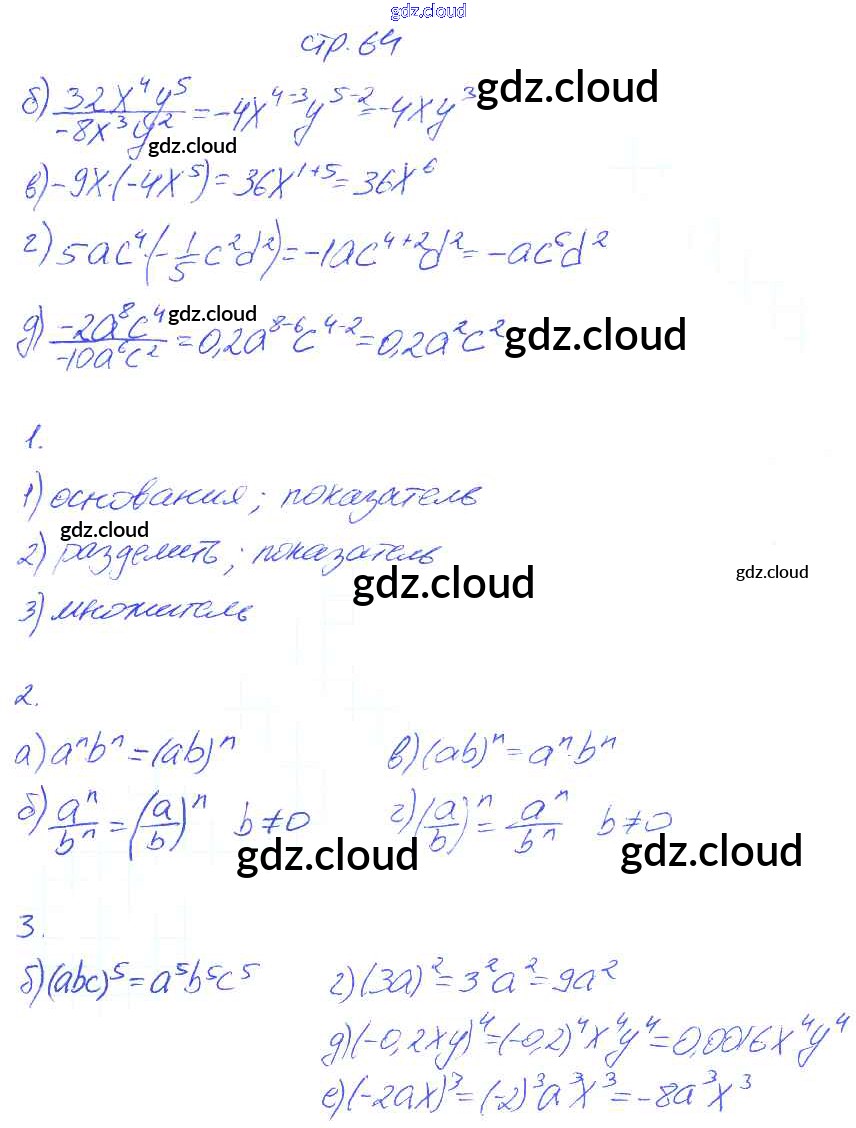 gdz.cloud
стр. 64
б) 32x⁴y⁵/-8x³y² = -4x⁴⁻³y⁵⁻² = -4xy³ gdz.cloud
gdz.cloud
в) -9x·(-4x⁵) = 36x¹⁺⁵ = 36x⁶
г) 5ac⁴·(-1/5 c²d²) = -1ac⁴⁺²d² = -ac⁶d²
д) -2a⁸c⁴/-10a⁶c² = 0,2a⁸⁻⁶c⁴⁻² = 0,2a²c² gdz.cloud
gdz.cloud
1.
1) основания; показатель
gdz.cloud
2) разделить; показатель
gdz.cloud gdz.cloud
3) множитель
2.
а) aⁿbⁿ = (ab)ⁿ в) (ab)ⁿ = aⁿ·bⁿ
б) aⁿ/bⁿ = (a/b)ⁿ b≠0 г) (a/b)ⁿ = aⁿ/bⁿ b≠0
gdz.cloud gdz.cloud
3.
б) (abc)⁵ = a⁵b⁵c⁵ г) (3a)² = 3²a² = 9a²
д) (-0,2xy)⁴ = (-0,2)⁴x⁴y⁴ = 0,0016x⁴y⁴
е) (-2ax)³ = (-2)³a³x³ = -8a³x³